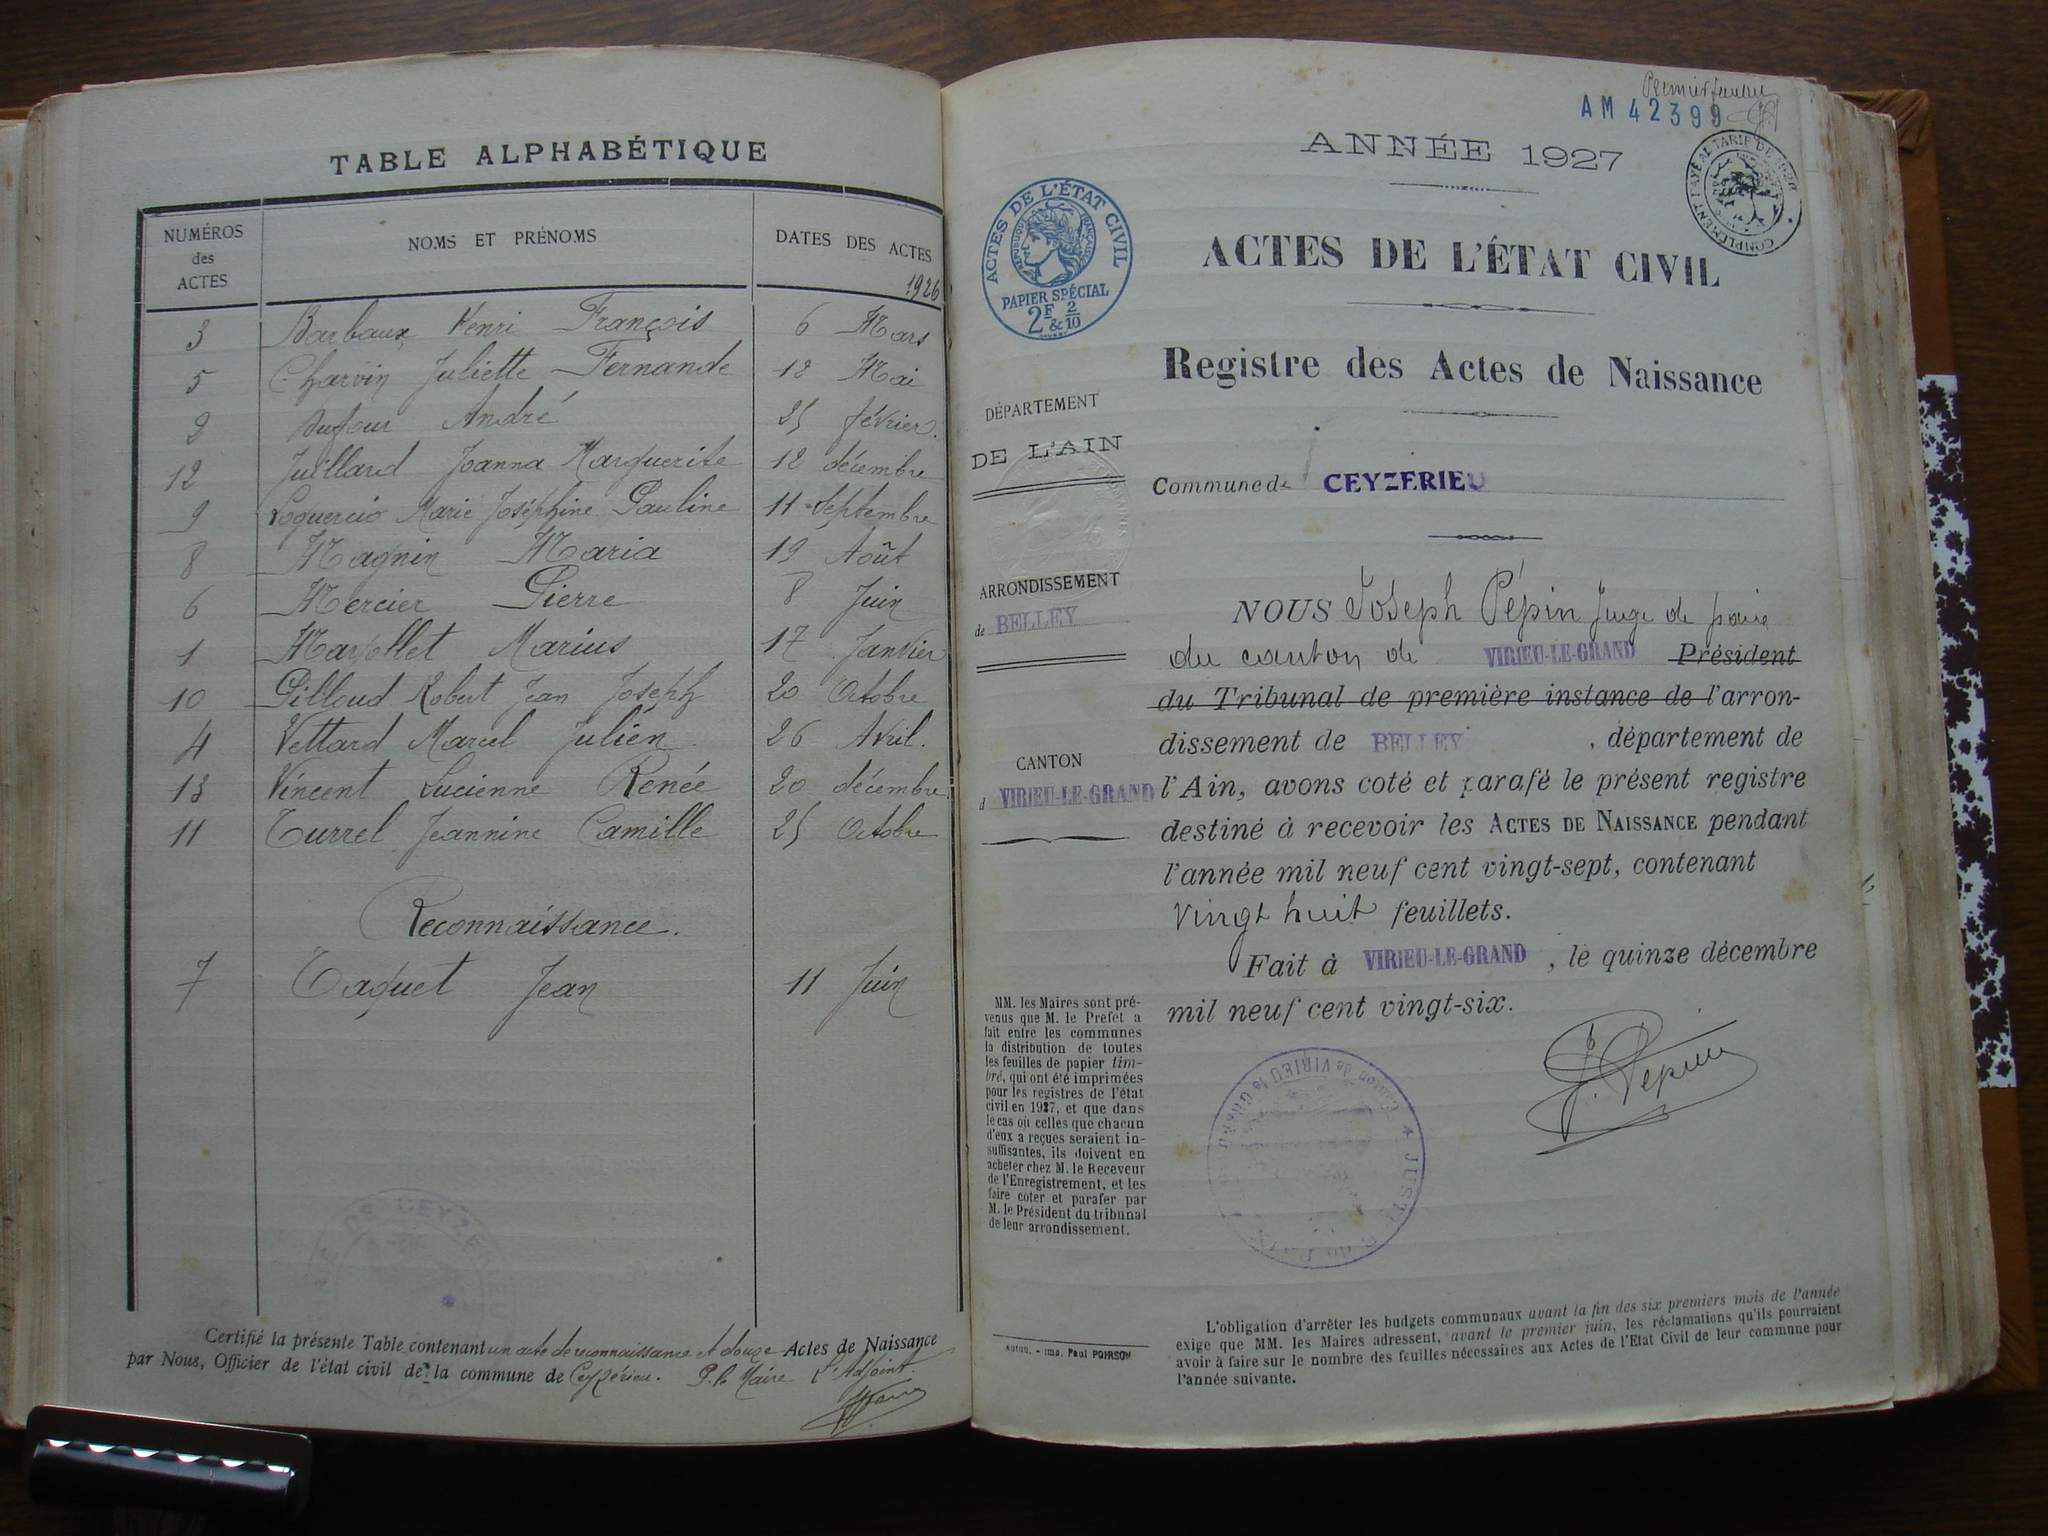 TABLE ALPHABÉTIQUE
NUMÉROS des ACTES
NOMS ET PRÉNOMS
DATES DES ACTES
1926
3 Barbaux Henri François 6 Mars
5 Charvin Juliette Fernande 12 Mai
2 Dufour André 25 février.
12 Juillard Joanna Marguerite 12 décembre
9 Loquercio Marie Joséphine Pauline 11 Septembre
8 Magnin Maria 19 Août
6 Mercier Pierre 8 Juin
1 Marius 17 Janvier
10 Pilloud Robert Jean Joseph 20 Octobre
4 Vettard Marcel Julien 26 Avril.
13 Vincent Lucienne Renée 20 décembre
11 Turrel Jeannine Camille 25 Octobre
Reconnaissance.
7 Taquet Jean 11 Juin
Certifié la présente Table contenant un acte de reconnaissance et douze Actes de Naissance
par Nous, Officier de l'état civil de la commune de Ceyzérieu. P. le Maire l'Adjoint.
DE CEYZERIEU
Premier feuillet
AM 42399
ANNÉE 1927
COMPLÉMENT PAYÉ AU TARIF DE
ACTES DE L'ÉTAT CIVIL
RÉPUBLIQUE FRANÇAISE
PAPIER SPÉCIAL
2F & 2/10
ACTES DE L'ÉTAT CIVIL
Registre des Actes de Naissance
DÉPARTEMENT
DE L'AIN
Commune de CEYZERIEU
ARRONDISSEMENT
de BELLEY
CANTON
d VIRIEU-LE-GRAND
NOUS Joseph Pépin Juge de paix
du canton de VIRIEU-LE-GRAND Président
du Tribunal de première instance de l'arron-
dissement de BELLEY , département de
l'Ain, avons coté et parafé le présent registre
destiné à recevoir les ACTES DE NAISSANCE pendant
l'année mil neuf cent vingt-sept, contenant
Vingt huit feuillets.
Fait à VIRIEU-LE-GRAND , le quinze décembre
mil neuf cent vingt-six.
J. Pépin
JUSTICE de PAIX
Canton de VIRIEU le GRAND
MM. les Maires sont pré-
venus que M. le Préfet a
fait entre les communes
la distribution de toutes
les feuilles de papier tim-
bré, qui ont été imprimées
pour les registres de l'état
civil en 1927, et que dans
le cas où celles que chacun
d'eux a reçues seraient in-
suffisantes, ils doivent en
acheter chez M. le Receveur
de l'Enregistrement, et les
faire coter et parafer par
M. le Président du tribunal
de leur arrondissement.
Autun. - Imp. Paul POIRSON
L'obligation d'arrêter les budgets communaux avant la fin des six premiers mois de l'année
exige que MM. les Maires adressent, avant le premier juin, les réclamations qu'ils pourraient
avoir à faire sur le nombre des feuilles nécessaires aux Actes de l'Etat Civil de leur commune pour
l'année suivante.